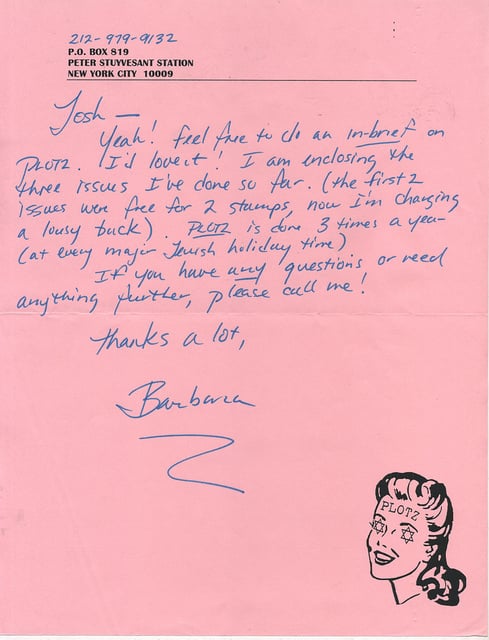 212-979-9132
P.O. BOX 819
PETER STUYVESANT STATION
NEW YORK CITY 10009
Josh —
Yeah! feel free to do an in-brief on
PLOTZ. I'd love it! I am enclosing the
three issues I've done so far. (the first 2
issues were free for 2 stamps, now I'm charging
a lousy buck). PLOTZ is done 3 times a year
(at every major Jewish holiday time)
If you have any questions or need
anything further, please call me!
thanks a lot,
Barbara
PLOTZ